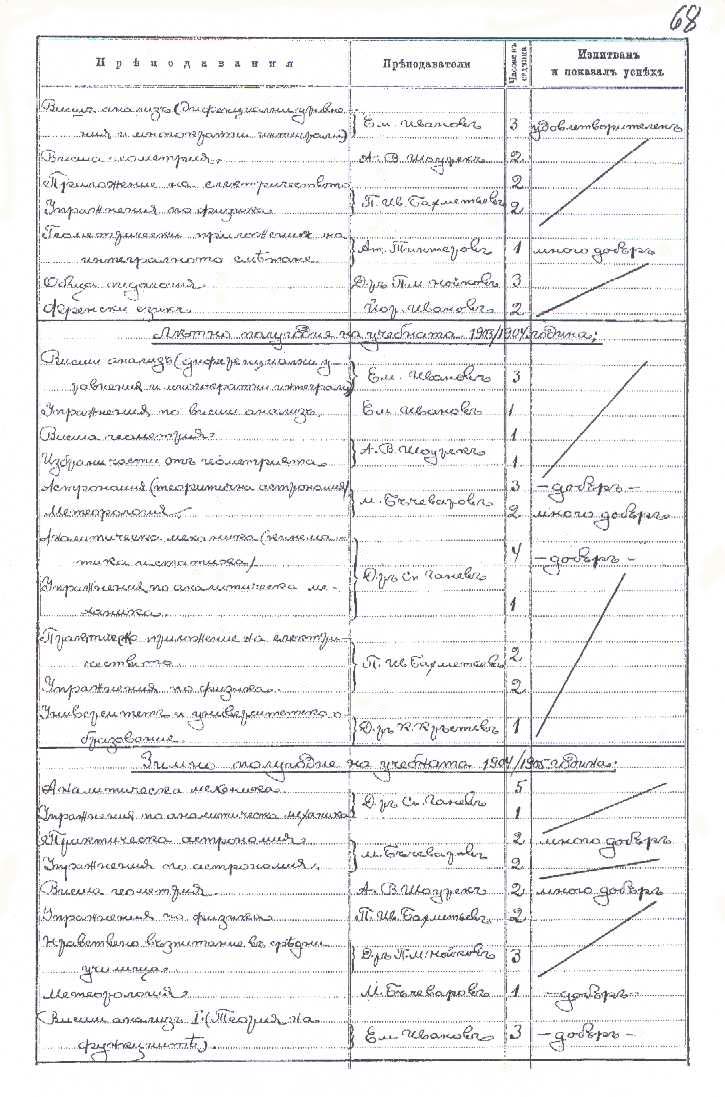 68
Прѣподавания Прѣподаватели Часове въ седмица Изпитванъ и показалъ успѣхъ
Висшъ анализъ (Диференциални уравне-
ния и многократни интеграли) Ем. Ивановъ 3 удовлетворителенъ
Висша геометрия. А. В. Шоурекъ 2
Приложение на електричеството 2
Упражнения по физика П. Ив. Бахметьевъ 2
Геометрически приложения на
интегралното смѣтане Ат. Тинтеровъ 1 много добъръ
Обща педагогия Д-ръ П. М. Нойковъ 3
Френски езикъ Йор. Ивановъ 2
Лѣтно полугодие на учебната 1903/1904 година;
Висши анализъ (диференциални у-
равнения и многократни интеграли) Ем. Ивановъ 3
Упражнения по висши анализъ. Ем. Ивановъ 1
Висша геометрия. 1
Избрани части отъ геометрията. А. В. Шоурекъ 1
Астрономия (теоритична астрономия) 3 -добъръ-
Метеорология М. Бъчеваровъ 2 много добъръ
Аналитическа механика (кинема-
тика и статика) 4 -добъръ-
Д-ръ Сп. Ганевъ
Упражнения по аналитическа ме-
ханика 1
приложение на електри-
чеството 2
П. Ив. Бахметьевъ
Упражнения по физика. 2
Университетъ и университетско о-
бразование. Д-ръ К. Кръстевъ 1
Зимно полугодие на учебната 1904/1905 година;
Аналитическа механика. 5
Д-ръ Сп. Ганевъ
Упражнения по аналитическа механика 1
Практическа астрономия. 2 много добъръ
М. Бъчеваровъ
Упражнения по астрономия. 2
Висша геометрия. А. В. Шоурекъ 2 много добъръ
Упражнения по физика П. Ив. Бахметьевъ 2
Нравствено възпитание въ срѣдни
училища. Д-ръ П. М. Нойковъ 3
Метеорология. М. Бъчеваровъ 1 -добъръ-
Висши анализъ I (Теория на
функциитѣ). Ем. Ивановъ 3 -добъръ-